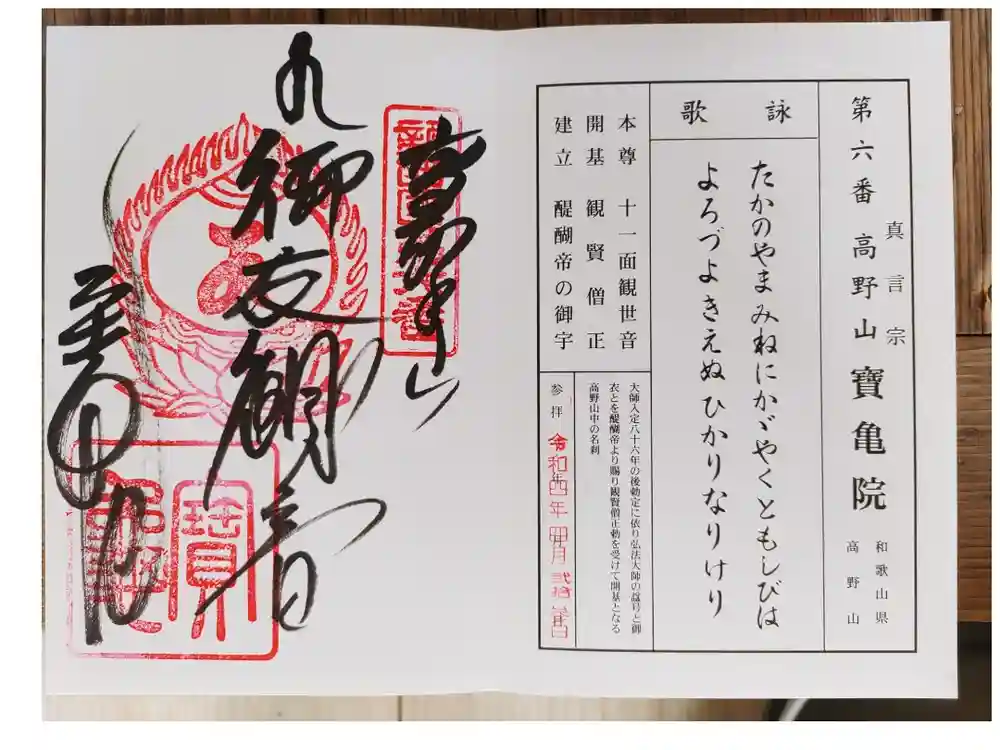 真言宗
第六番 高野山 寶亀院
和歌山県
高野山
詠歌
たかのやまみねにかゞやくともしびは
よろづよきえぬひかりなりけり
本尊 十一面観世音
開基 観賢僧正
建立 醍醐帝の御宇
大師入定八十六年の後勅定に依り弘法大師の諡号と御
衣とを醍醐帝より賜り観賢僧正勅を受けて開基となる
高野山中の名刹
参拝 令和四年 四月 弐拾
高野山
御衣観音
寶亀院
寶